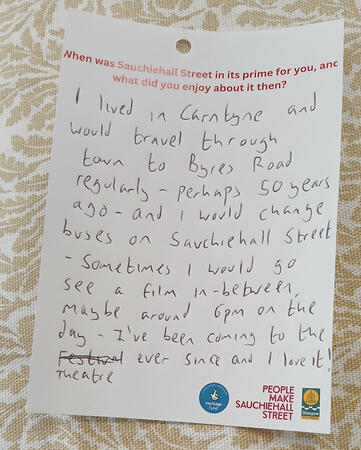 When was Sauchiehall Street in its prime for you, and
what did you enjoy about it then?
I lived in Carntyne and
would travel through
town to Byres Road
regularly - perhaps 50 years
ago - and I would change
buses on Sauchiehall Street
- Sometimes I would go
see a film in-between,
maybe around 6pm on the
day - I've been coming to the
Festival ever since and I love it!
Theatre
Heritage
Fund
PEOPLE
MAKE
SAUCHIEHALL
STREET
Glasgow